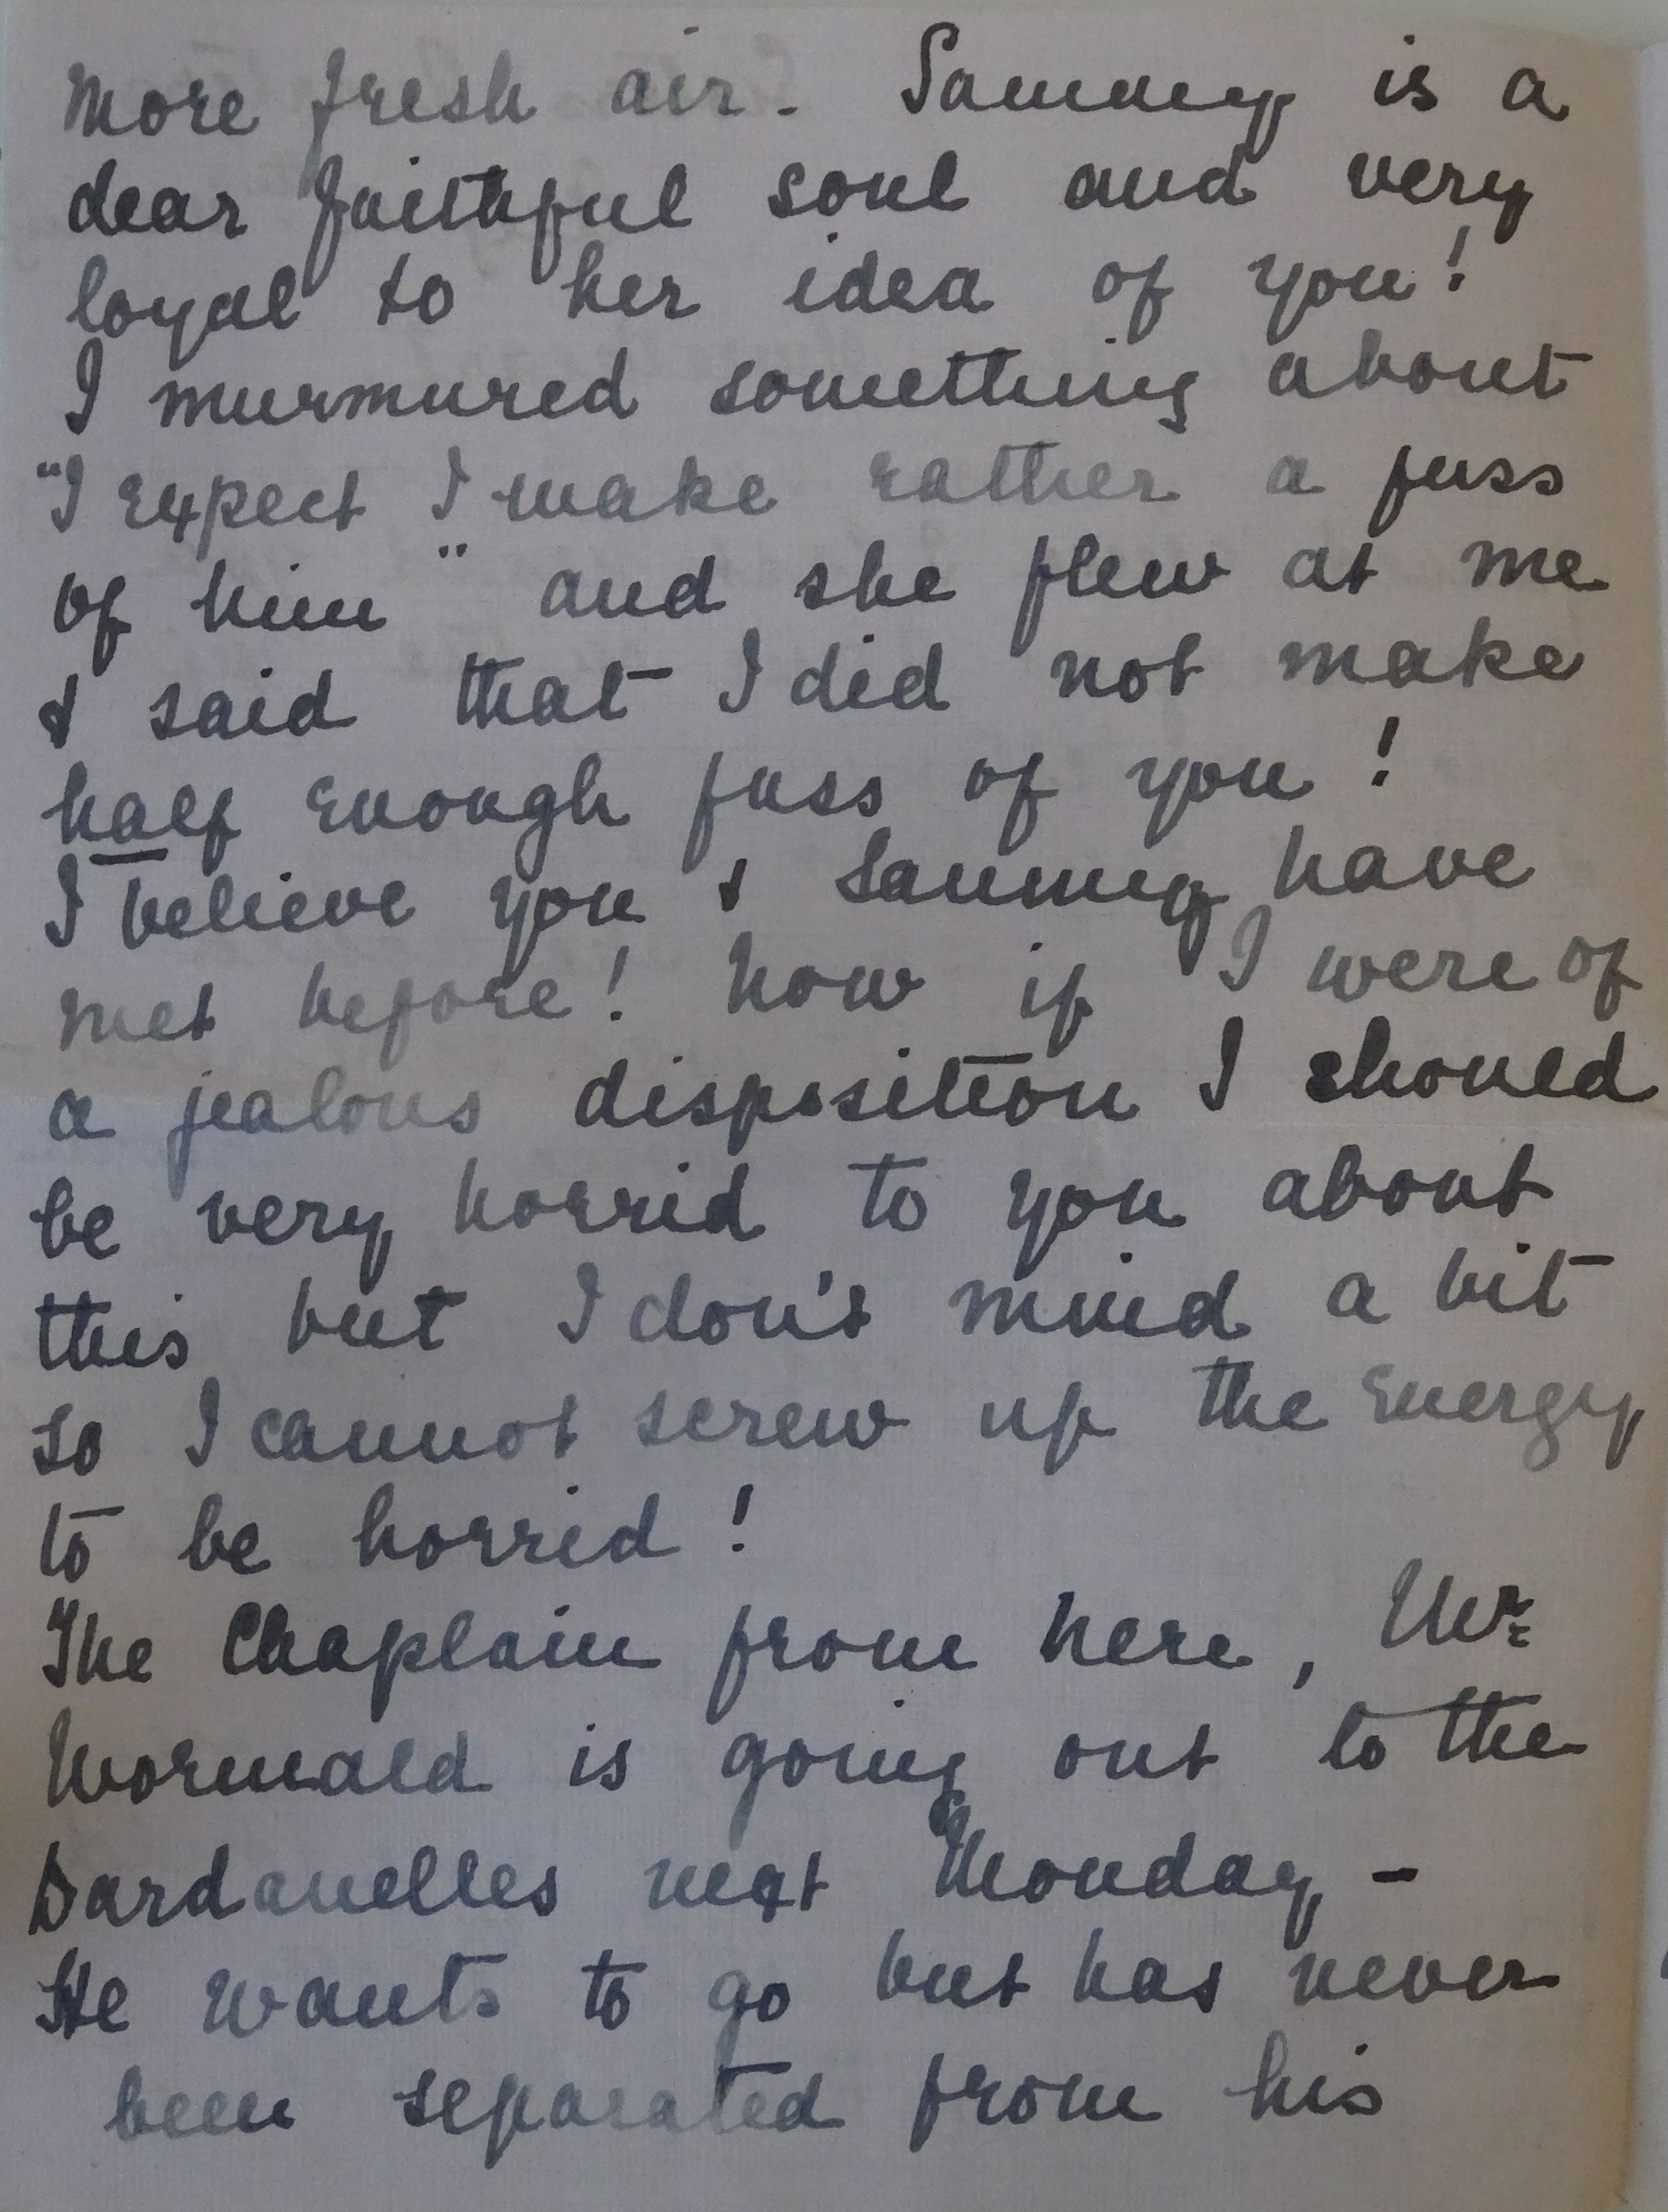 more fresh air. Sammy is a
dear faithful soul and very
loyal to her idea of you!
I murmured something about
"I expect I make rather a fuss
of him" and she flew at me
& said that I did not make
half enough fuss of you!
I believe you & Sammy have
met before! Now if I were of
a jealous disposition I should
be very horrid to you about
this but I don't mind a bit
so I cannot screw up the energy
to be horrid!
The Chaplain from here, Mr
Wormald is going out to the
Dardanelles next Monday -
He wants to go but has never
been separated from his